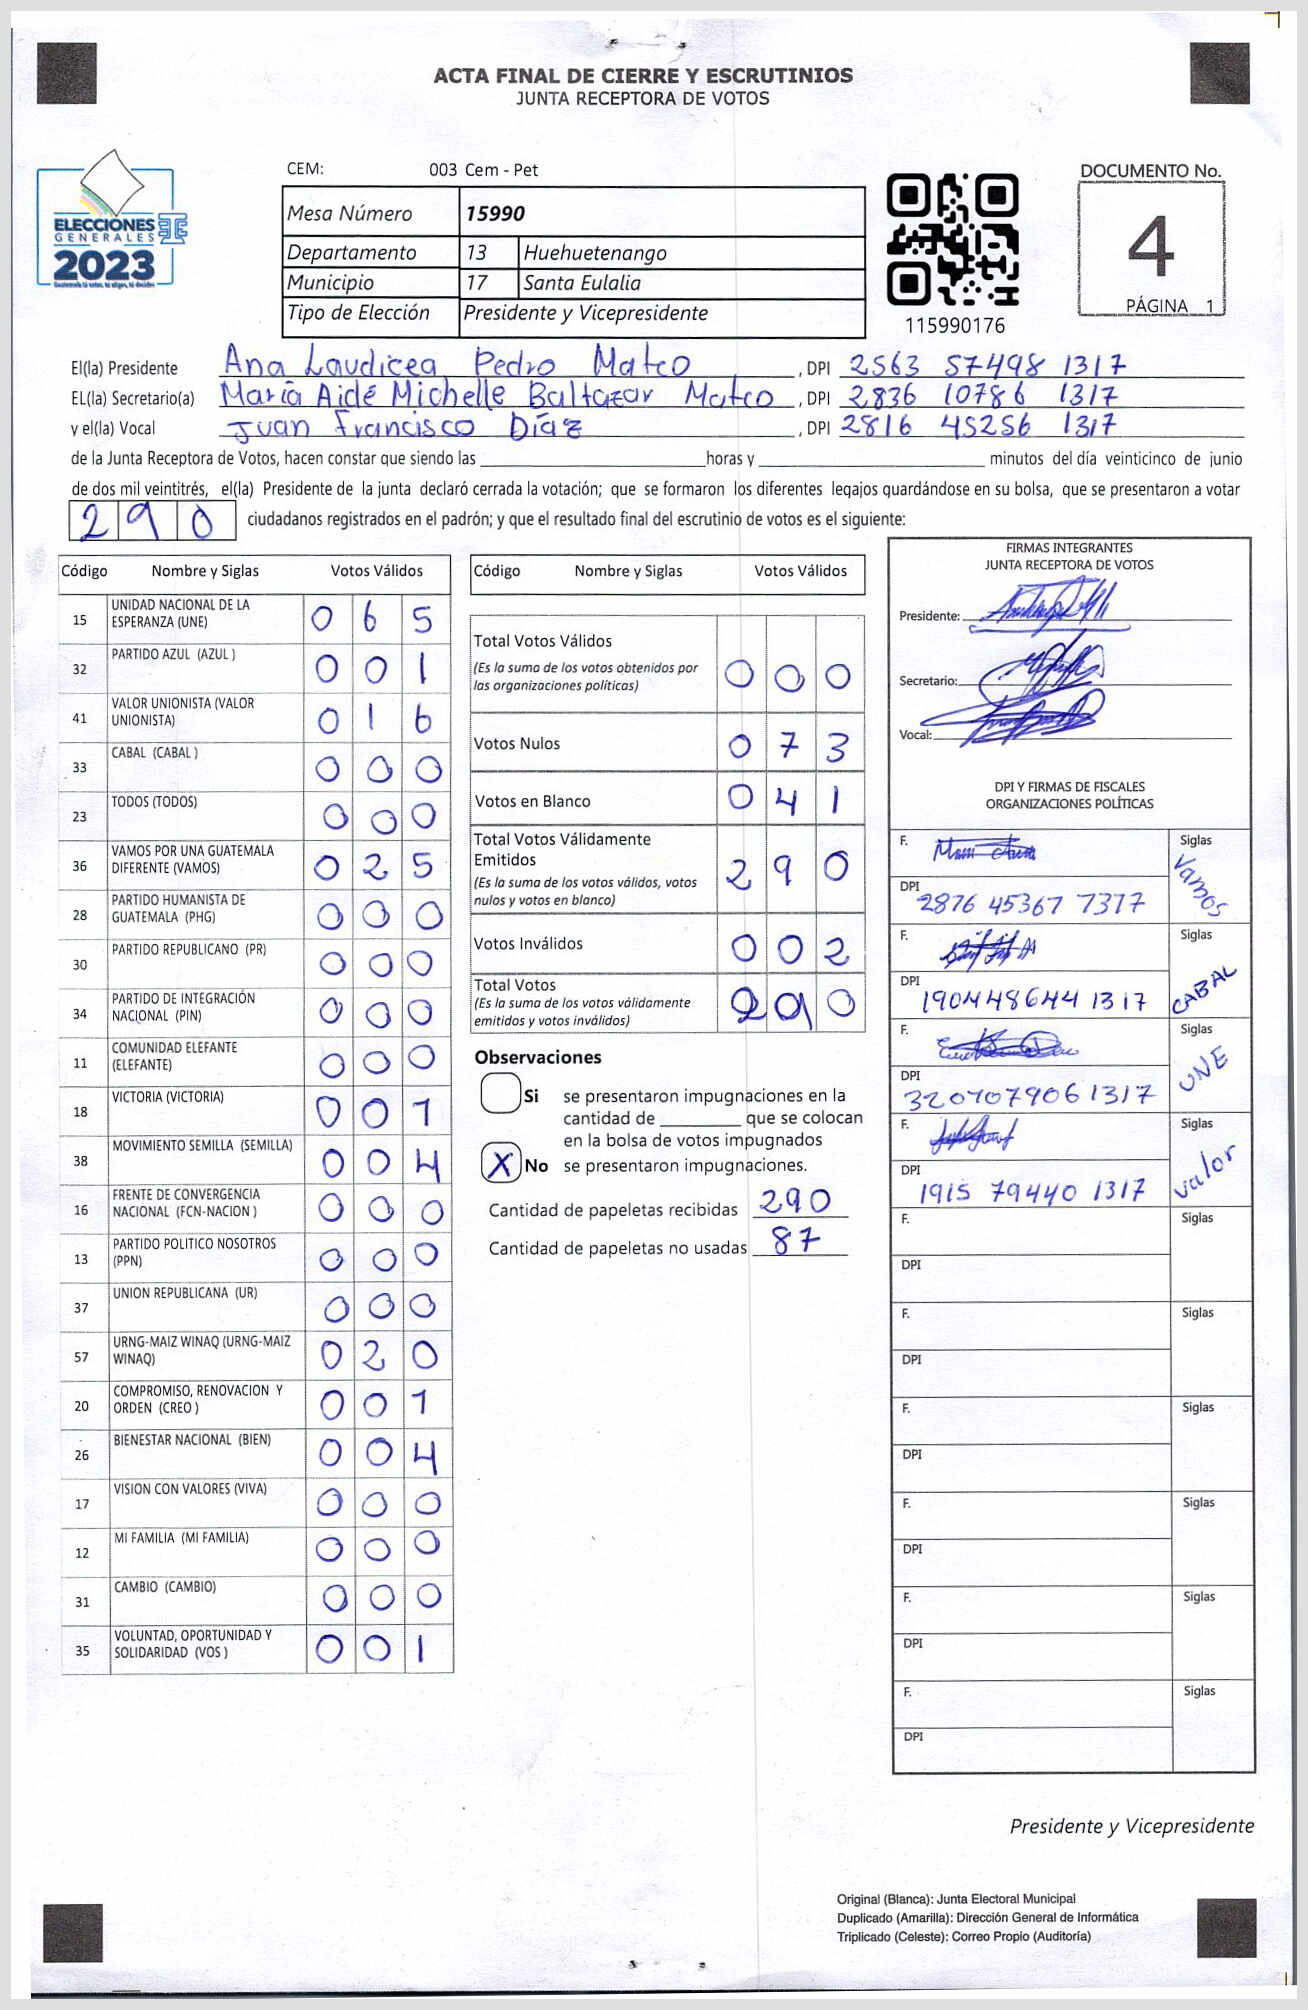 ACTA FINAL DE CIERRE Y ESCRUTINIOS
JUNTA RECEPTORA DE VOTOS
ELECCIONES
GENERALES
2023
Guatemala tú votas, tú eliges, tú decides
CEM: 003 Cem - Pet
Mesa Número 15990
Departamento 13 Huehuetenango
Municipio 17 Santa Eulalia
Tipo de Elección Presidente y Vicepresidente
115990176
DOCUMENTO No.
4
PÁGINA 1
El(la) Presidente Ana Laudicea Pedro Mateo , DPI 2563 57498 1317
EL(la) Secretario(a) María Aidé Michelle Baltazar Mateo , DPI 2836 10786 1317
y el(la) Vocal Juan Francisco Díaz , DPI 2816 45256 1317
de la Junta Receptora de Votos, hacen constar que siendo las horas y minutos del día veinticinco de junio
de dos mil veintitrés, el(la) Presidente de la junta declaró cerrada la votación; que se formaron los diferentes legajos guardándose en su bolsa, que se presentaron a votar
290 ciudadanos registrados en el padrón; y que el resultado final del escrutinio de votos es el siguiente:
Código Nombre y Siglas Votos Válidos
15 UNIDAD NACIONAL DE LA ESPERANZA (UNE) 065
32 PARTIDO AZUL (AZUL ) 001
41 VALOR UNIONISTA (VALOR UNIONISTA) 016
33 CABAL (CABAL ) 000
23 TODOS (TODOS) 000
36 VAMOS POR UNA GUATEMALA DIFERENTE (VAMOS) 025
28 PARTIDO HUMANISTA DE GUATEMALA (PHG) 000
30 PARTIDO REPUBLICANO (PR) 000
34 PARTIDO DE INTEGRACIÓN NACIONAL (PIN) 000
11 COMUNIDAD ELEFANTE (ELEFANTE) 000
18 VICTORIA (VICTORIA) 001
38 MOVIMIENTO SEMILLA (SEMILLA) 004
16 FRENTE DE CONVERGENCIA NACIONAL (FCN-NACION ) 000
13 PARTIDO POLITICO NOSOTROS (PPN) 000
37 UNION REPUBLICANA (UR) 000
57 URNG-MAIZ WINAQ (URNG-MAIZ WINAQ) 020
20 COMPROMISO, RENOVACION Y ORDEN (CREO ) 001
26 BIENESTAR NACIONAL (BIEN) 004
17 VISION CON VALORES (VIVA) 000
12 MI FAMILIA (MI FAMILIA) 000
31 CAMBIO (CAMBIO) 000
35 VOLUNTAD, OPORTUNIDAD Y SOLIDARIDAD (VOS ) 001
Código Nombre y Siglas Votos Válidos
Total Votos Válidos 000
(Es la suma de los votos obtenidos por
las organizaciones políticas)
Votos Nulos 073
Votos en Blanco 041
Total Votos Válidamente
Emitidos 290
(Es la suma de los votos válidos, votos
nulos y votos en blanco)
Votos Inválidos 002
Total Votos 290
(Es la suma de los votos válidamente
emitidos y votos inválidos)
Observaciones
Si se presentaron impugnaciones en la
cantidad de que se colocan
en la bolsa de votos impugnados
X No se presentaron impugnaciones.
Cantidad de papeletas recibidas 290
Cantidad de papeletas no usadas 87
FIRMAS INTEGRANTES
JUNTA RECEPTORA DE VOTOS
Presidente:
Secretario:
Vocal:
DPI Y FIRMAS DE FISCALES
ORGANIZACIONES POLÍTICAS
F. Siglas Vamos
DPI 2876 45367 7317
F. Siglas CABAL
DPI 190448644 1317
F. Siglas UNE
DPI 3207079061317
F. Siglas Valor
DPI 1915 79440 1317
F. Siglas
DPI
F. Siglas
DPI
F. Siglas
DPI
F. Siglas
DPI
F. Siglas
DPI
F. Siglas
DPI
Presidente y Vicepresidente
Original (Blanca): Junta Electoral Municipal
Duplicado (Amarilla): Dirección General de Informática
Triplicado (Celeste): Correo Propio (Auditoría)